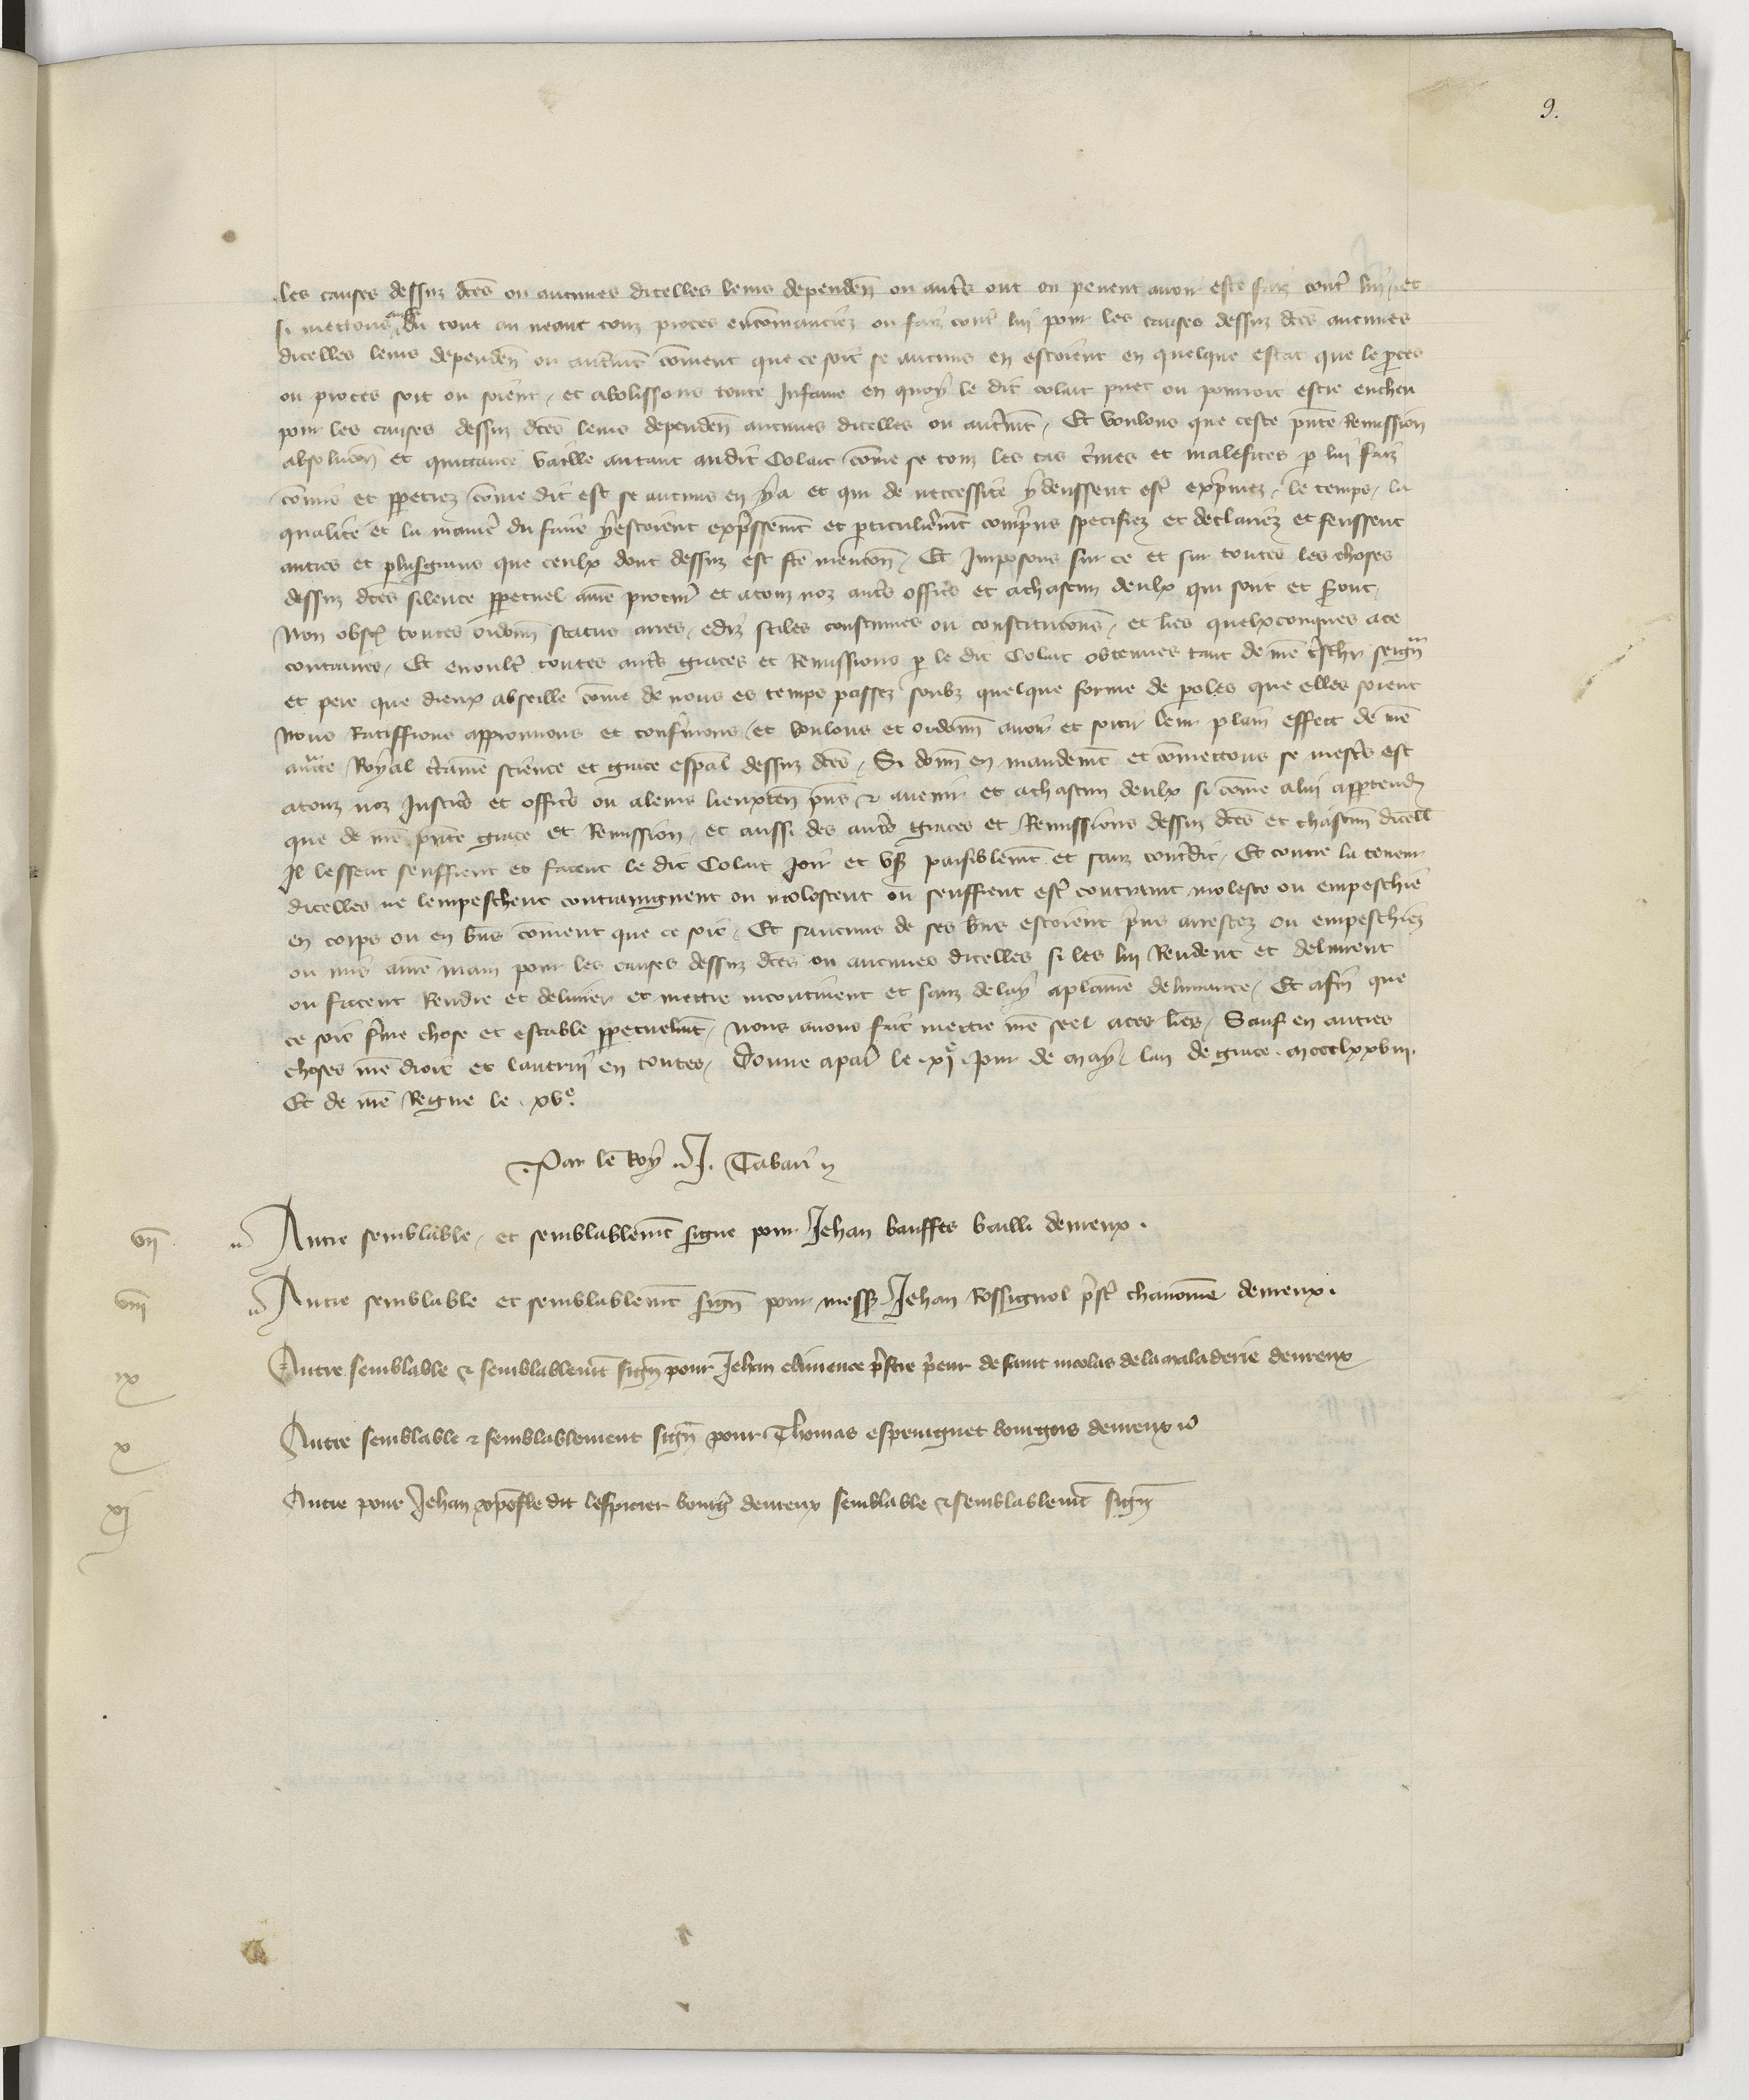 9.
les causes dessuz dc̄es ou aucunes dicelles leurs dependen̄ ou autr̄s ont ou peuent auoir este faiz contr̄ lui / et
si mettons aussi du tout au neant touz proces encōmanciez ou faiz contr̄ lui pour les causes dessuz dc̄es aucunes
dicelles leurs dependen̄ ou autremēt cōment que ce soit se aucuns en estoient en quelque estat que le ꝓces
ou proces soit ou soient / et abolissons toute Infame en quoy le dit colart puet ou pourroit estre encheu
pour les causes dessuz dc̄es leurs dependen̄ aucunes dicelles ou autremt̄ / Et voulons que ceste p̄nte Remission
absolucōn et quittance vaille autant audit Colart cōme se touz les cas cr̄mes et malefices ꝑ lui faiz
cōmis et ꝑpetrez cōme dit est se aucuns en y a et qui de neccessite y deussent estr̄ exp̄mez / le temps / la
qualite et la manier̄ du faire y estoient exp̄ssemt̄ et ꝑticulierement comp̄ns specifiez et declariez et feussent
autres et plusgrans que ceulx dont dessuz est fc̄e mencōn / Et Imposons sur ce et sur toutes les choses
dessuz dc̄es silence ꝑpetuel a nr̄e procur̄ et a touz noz autr̄s offic̄rs et a chascun deulx qui sont et ser̄ont /
Non obst̄ toutes ordonn̄ status arres / ediz stiles coustumes ou constitucōns / et lr̄es quelxconques a ce
contraires / Et enoultr̄ toutes autr̄s graces et Remissions ꝑ le dit Colart obtenues tant de nr̄e tr̄scher seign̄r
et pere que dieux absoille cōme de nous es temps passez soubz quelque forme de ꝑoles que elles soient
Nous Ratiffions approuuons et confermons / et voulons et ordonn̄ auoir et sortir leur plain effect de nr̄e
auctte Royal certaine science et grace esp̄al dessuz dc̄es / Si donn̄ en mandemt̄ et cōmettons se mestr̄s est
atouz noz Justic̄rs et offic̄rs ou aleurs lieuxten̄ p̄ns ⁊ auenir et achascun deulx si cōme alui appartend̄ra
que de nr̄e p̄nte grace et Remission / et aussi des autr̄s graces et Remissions dessuz dc̄es et chascun̄ dicell̄
Il lessent seuffrent et facent le dit Colart Joir et vs̄er paisiblemt̄ et sanz contr̄dit / Et contre la teneur
dicelles ne lempeschent contraingnent ou molestent ou seuffrent estr̄ contraint moleste ou empeschie
en corps ou en biens cōment que ce soit / Et saucuns de ses biens estoient p̄ns arrestez ou empeschiez
ou mis a nr̄e main pour les causes dessuz dc̄es ou aucunes dicelles si les lui Rendent et deliurent
ou facent Rendre et deliurer et mettre incontinent et sanz delay aplaine deliurance / Et afin que
ce soit ferme chose et estable ꝑpetuelmt̄ / Nous auons fait mettre nr̄e seel aces lr̄es / Sauf en autres
choses nr̄e droit et lautrui en toutes / Donne apar̄ le .xi.e Jour de May / lan de grace .mccclxxviii.
Et de nr̄e Regne le .xv.e
Par le Roy .J. Tabari
vii Autre semblable / et semblablemt̄ signe pour Jehan bauffes bailli deureux .
viii Autre semblable et semblablemt̄ sign̄ pour mess̄ Jehan Rossignol pr̄str̄ chanoine deureux .
ix Autre semblable ⁊ semblablemt̄ sign̄ pour Jehan climence pr̄stre pr̄eur de saint nicolas de la maladerie deureux
x Autre semblable ⁊ semblablement sign̄ pour Thomas espreuignet bourgois deureux
xi Autre pour Jehan xp̄ofle dit lespicier bourḡ deureux semblable ⁊ semblablemt̄ sign̄